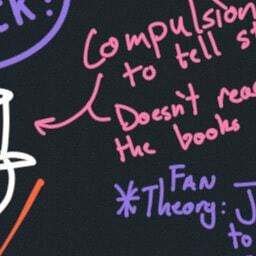 CK!
Compulsion
to tell st
Doesn't rea
the books
*FAN
Theory: J
to